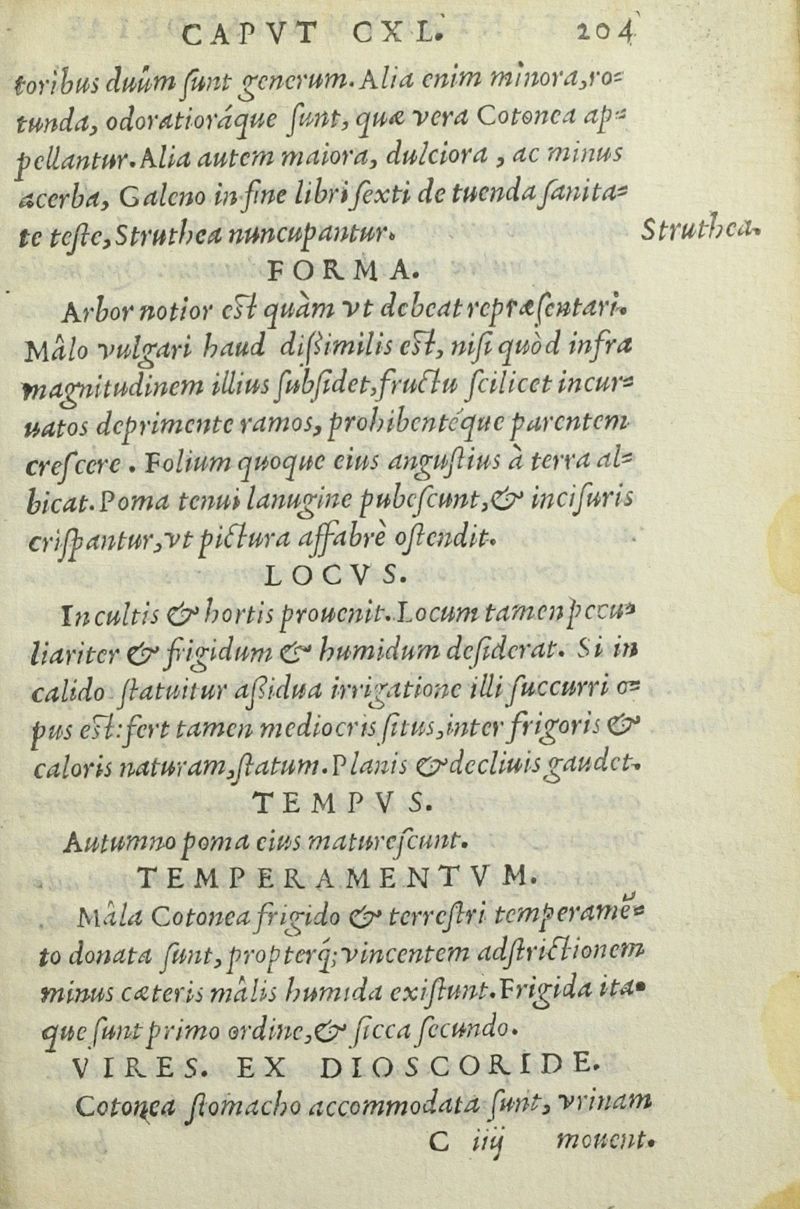 CAPVT CXL. 204
toribus duûm ſunt generum. Alia enim minora, ro-
tunda, odoratioráque ſunt, quæ vera Cotonea ap-
pellantur. Alia autem maiora, dulciora, ac minus
acerba, Galeno in fine libri ſexti de tuenda ſanita-
te teſte, Struthea nuncupantur.
Struthea.
FORMA.
Arbor notior est quàm vt debeat repræſentari.
Mâlo vulgari haud diſsimilis est, niſi quòd infra
magnitudinem illius ſubſidet, fructu ſcilicet incur-
uatos deprimente ramos, prohibentéque parentem
creſcere. Folium quoque eius anguſtius à terra al-
bicat. Poma tenui lanugine pubeſcunt, & inciſuris
criſpantur, vt pictura affabrè oſtendit.
LOCVS.
In cultis & hortis prouenit. Locum tamen pecu-
liariter & frigidum & humidum deſiderat. Si in
calido ſtatuitur aſsidua irrigatione illi ſuccurri o-
pus est: fert tamen mediocris ſitus, inter frigoris &
caloris naturam, ſtatum. Planis & decliuis gaudet.
TEMPVS.
Autumno poma eius matureſcunt.
TEMPERAMENTVM.
Mâla Cotonea frigido & terreſtri temperamē-
to donata ſunt, propterq́; vincentem adſtrictionem
minus cæteris mâlis humida exiſtunt. Frigida ita-
que ſunt primo ordine, & ſicca ſecundo.
VIRES. EX DIOSCORIDE.
Cotonea ſtomacho accommodata ſunt, vrinam
C iiij mouent.